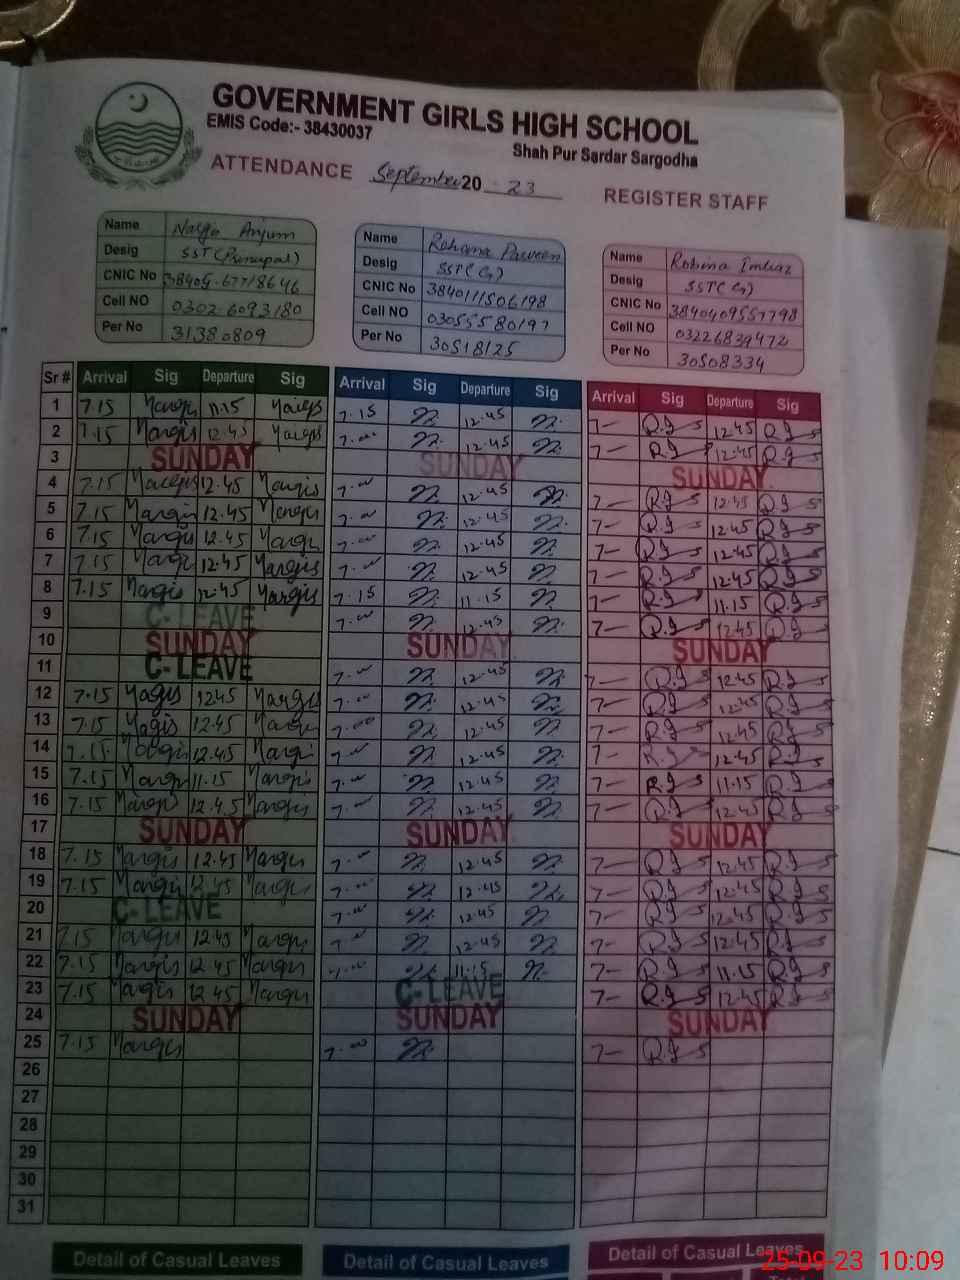 GOVERNMENT GIRLS HIGH SCHOOL
EMIS Code:- 38430037
Shah Pur Sardar Sargodha
ATTENDANCE September 20 23 REGISTER STAFF
Name Anjum
Desig SST (Principal)
CNIC No
Cell NO 0302 6093180
Per No 31380809
Name Rehana Parveen
Desig SST (G)
CNIC No 3840111506198
Cell NO 03055580197
Per No 30518125
Name Robina Imtiaz
Desig SST (G)
CNIC No 3840409557798
Cell NO 03226839472
Per No 30508334
Sr # Arrival Sig Departure Sig Arrival Sig Departure Sig Arrival Sig Departure Sig
1 7.15 Nargis 11.15 Nargis 7.15 12.45 7- R.I 12.45 R.I
2 7.15 Nargis 12.45 Nargis 7.00 12.45 7- R.I 12.45 R.I
3 SUNDAY SUNDAY SUNDAY
4 7.15 Nargis 12.45 Nargis 7.00 12.45 7- R.I 12.45 R.I
5 7.15 Nargis 12.45 Nargis 7.00 12.45 7- R.I 12.45 R.I
6 7.15 Nargis 12.45 Nargis 7.00 12.45 7- R.I 12.45 R.I
7 7.15 Nargis 12.45 Nargis 7.00 12.45 7- R.I 12.45 R.I
8 7.15 Nargis 12.45 Nargis 7.15 11.15 7- R.I 11.15 R.I
9 C-LEAVE 7.00 12.45 7- R.I 12.45 R.I
10 SUNDAY SUNDAY SUNDAY
11 C-LEAVE 7.00 12.45 7- R.I 12.45 R.I
12 7.15 Nargis 12.45 Nargis 7.00 12.45 7- R.I 12.45 R.I
13 7.15 Nargis 12.45 Nargis 7.00 12.45 7- R.I 12.45 R.I
14 7.15 Nargis 12.45 Nargis 7.00 12.45 7- R.I 12.45 R.I
15 7.15 Nargis 11.15 Nargis 7.00 12.45 7- R.I 11.15 R.I
16 7.15 Nargis 12.45 Nargis 7.00 12.45 7- R.I 12.45 R.I
17 SUNDAY SUNDAY SUNDAY
18 7.15 Nargis 12.45 Nargis 7.00 12.45 7- R.I 12.45 R.I
19 7.15 Nargis 12.45 Nargis 7.00 12.45 7- R.I 12.45 R.I
20 C-LEAVE 7.00 12.45 7- R.I 12.45 R.I
21 7.15 Nargis 12.45 Nargis 7.00 12.45 7- R.I 12.45 R.I
22 7.15 Nargis 12.45 Nargis 7.00 11.15 7- R.I 11.15 R.I
23 7.15 Nargis 12.45 Nargis C-LEAVE 7- R.I 12.45 R.I
24 SUNDAY SUNDAY SUNDAY
25 7.15 Nargis 7.00 7- R.I
26
27
28
29
30
31
Detail of Casual Leaves Detail of Casual Leaves Detail of Casual Leaves
25-09-23 10:09